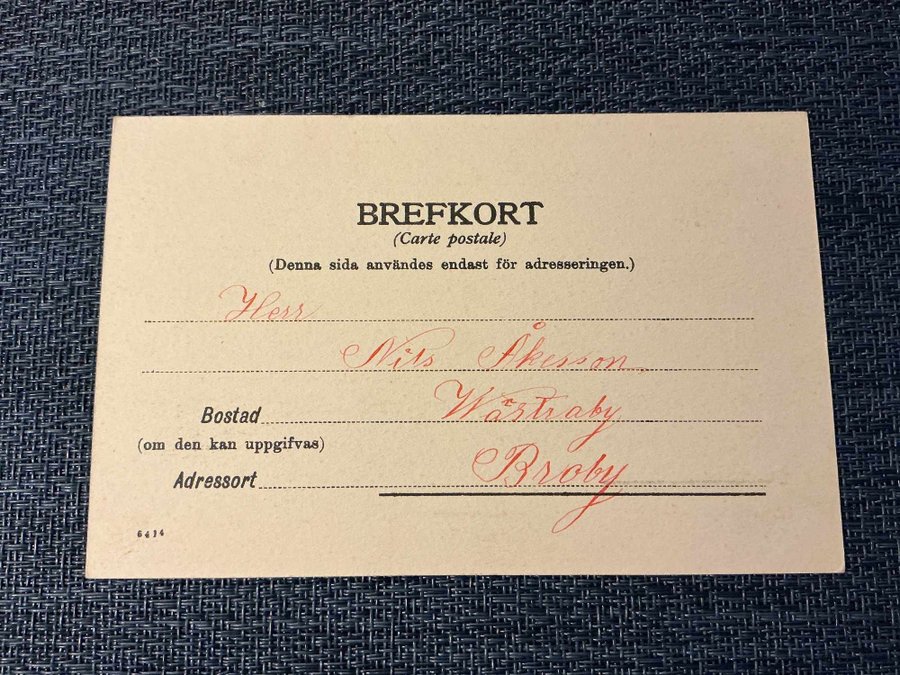 BREFKORT
(Carte postale)
(Denna sida användes endast för adresseringen.)
Herr
Nils Åkesson
Bostad Wästraby
(om den kan uppgifvas)
Adressort Broby
6414